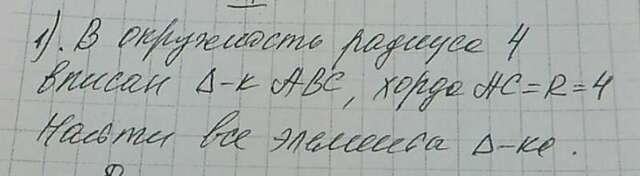 1). В окружность радиуса 4
вписан Δ-к ABC, хорда AC=R=4
Найти все элемента Δ-ка.